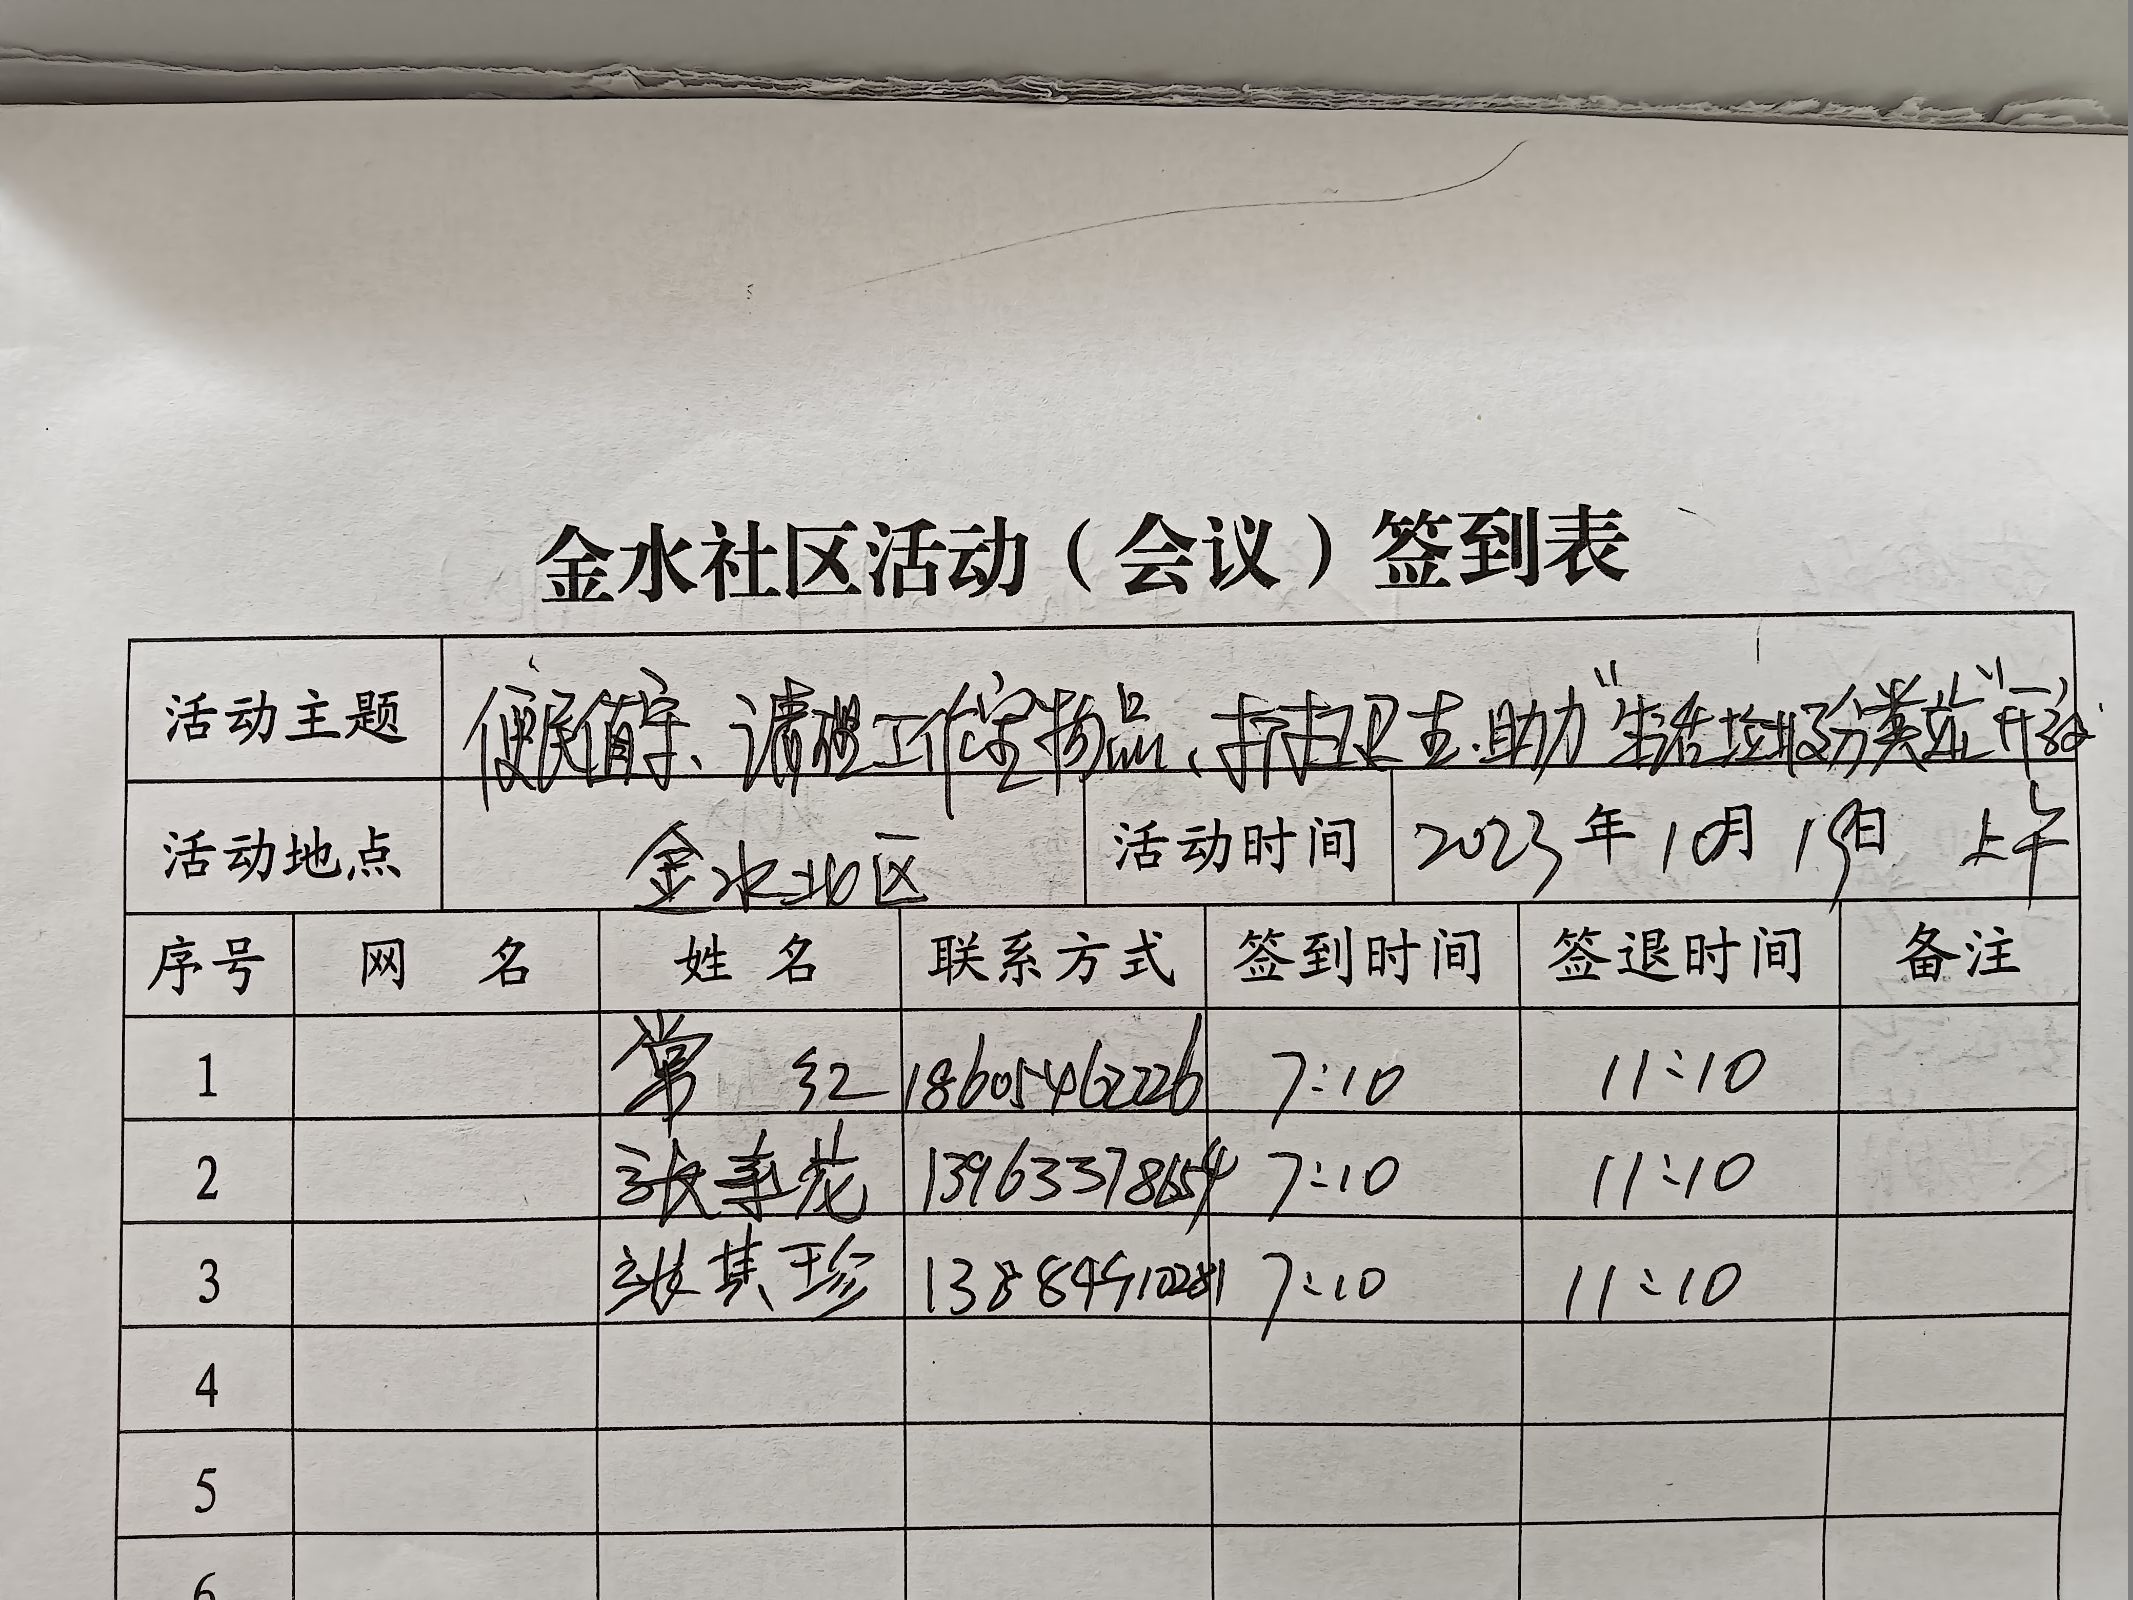 金水社区活动（会议）签到表
活动主题 便民值守、清理工作室物品、打扫卫生.助力"生活垃圾分类站"开放
活动地点 金水北区 活动时间 2023年10月19日 上午
序号 网 名 姓 名 联系方式 签到时间 签退时间 备注
1 常 红 18605462226 7:10 11:10
2 张 花 13963378654 7:10 11:10
3 张其珍 13884910281 7:10 11:10
4
5
6